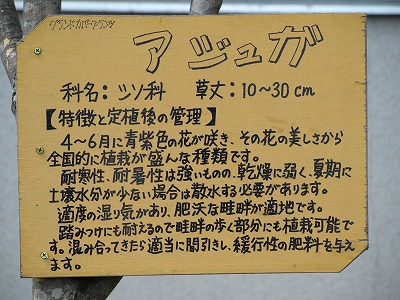 グランドカバープランツ
アジュガ
科名：シソ科　草丈：10～30cm
【特徴と定植後の管理】
4～6月に青紫色の花が咲き、その花の美しさから
全国的に植栽が盛んな種類です。
耐寒性、耐暑性は強いものの、乾燥に弱く、夏期に
土壌水分が少ない場合は散水する必要があります。
適度の湿り気があり、肥沃な畦畔が適地です。
踏みつけにも耐えるので畦畔の歩く部分にも植栽可能で
す。混み合ってきたら適当に間引きし、緩行性の肥料を与え
ます。